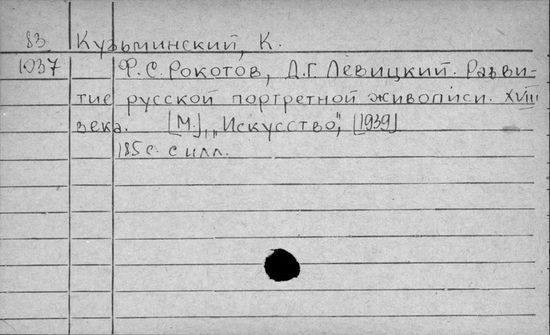 83 Кузьминский, К.
1037 Ф.С. Рокотов, Д.Г. Левицкий. Разви-
тие русской портретной живописи. XVIII
века. [М.], „Искусство“, [1939]
185 с. с илл.